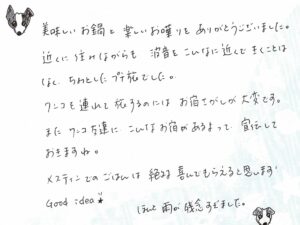 美味しいお鍋と楽しいお喋りをありがとうございました。
近くに住みながらも 波音をこんなに近くできくことは
なく、ちょっとした プチ旅でした。
ワンコを連れて旅するのには お宿さがしが大変です。
また ワンコ友達に こんなお宿があるよって 宣伝して
おきますね。
メスティンでのごはんは 絶対 喜んでもらえると思います!
Good idea★
ほんと 雨が残念すぎました。